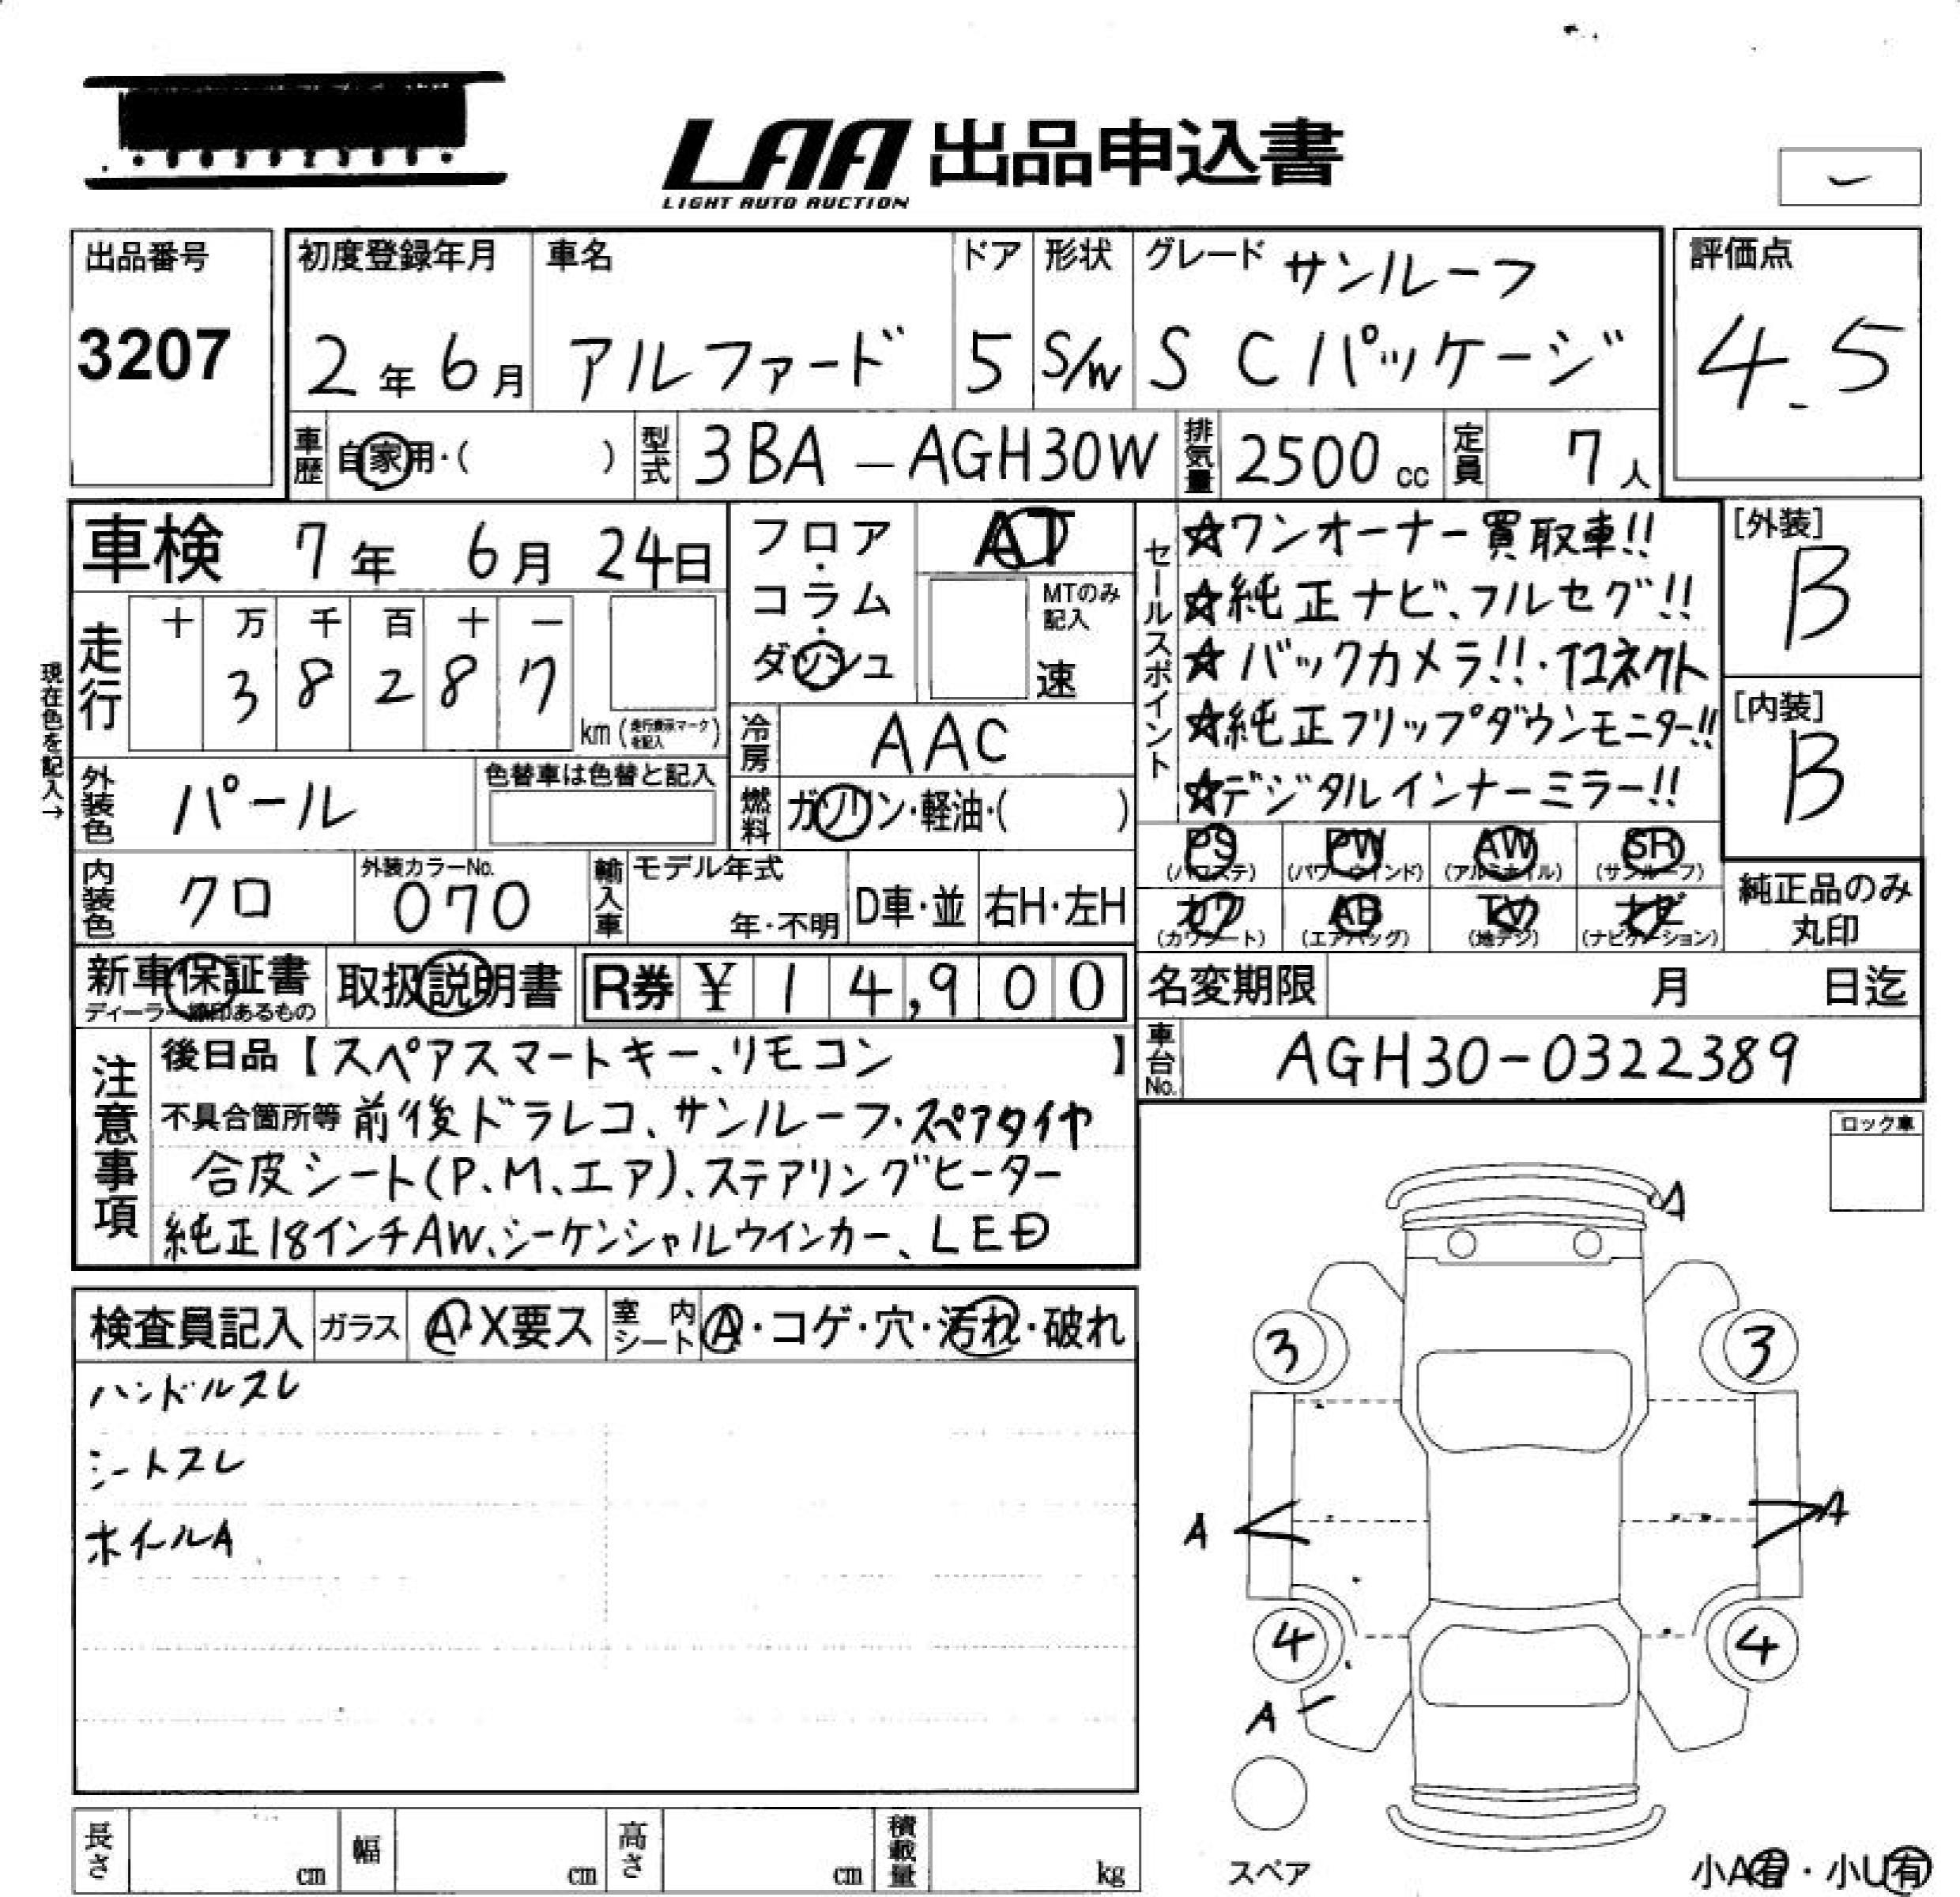 LAA 出品申込書
LIGHT AUTO AUCTION
出品番号
3207
初度登録年月
2年6月
車名
アルファード
ドア
5
形状
S/W
グレード サンルーフ
S Cパッケージ
評価点
4.5
車歴 自家用・( )
型式 3BA-AGH30W
排気量 2500cc
定員 7人
車検 7年 6月 24日
走行
十 万 千 百 十 一
3 8 2 8 7
km(走行表示マークを記入)
現在色を記入→
フロア・コラム・ダッシュ
AT
MTのみ記入
速
冷房 AAC
燃料 ガソリン・軽油・( )
外装色 パール
色替車は色替と記入
内装色 クロ
外装カラーNo.
070
輸入車
モデル年式
年・不明
D車・並
右H・左H
セールスポイント
☆ワンオーナー買取車!!
☆純正ナビ、フルセグ!!
☆バックカメラ!!・Tコネクト
☆純正フリップダウンモニター!!
☆デジタルインナーミラー!!
[外装]
B
[内装]
B
PS (パワステ)
PW (パワーウインド)
AW (アルミホイル)
SR (サンルーフ)
カワ (カワシート)
AB (エアバッグ)
TV (地デジ)
ナビ (ナビゲーション)
純正品のみ
丸印
新車保証書
ディーラー締印あるもの
取扱説明書
R券 ¥ 14,900
名変期限 月 日迄
車台No. AGH30-0322389
注意事項
後日品【スペアスマートキー、リモコン】
不具合箇所等 前後ドラレコ、サンルーフ・スペアタイヤ
合皮シート(P.M、エア)、ステアリングヒーター
純正18インチAW、シーケンシャルウインカー、LED
ロック車
検査員記入
ガラス A・X要ス
室内シート A・コゲ・穴・汚れ・破れ
ハンドルスレ
シートスレ
ホイールA
A
3
3
A
A
4
4
A
スペア
小A有・小U有
長さ cm
幅 cm
高さ cm
積載量 kg